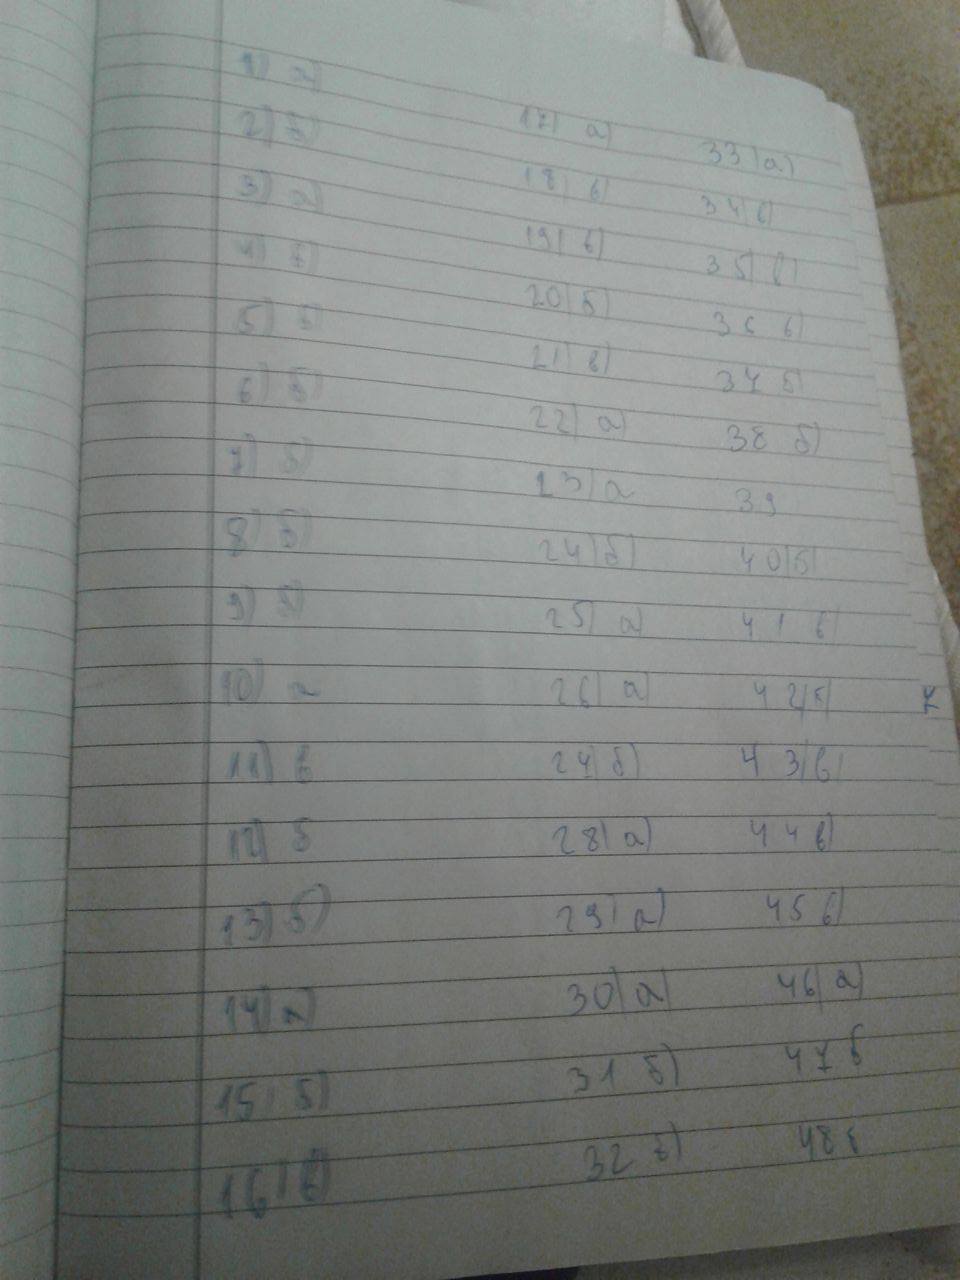 1) а)
2)
3) а)
4)
5)
6) б)
7) б)
8) б)
9)
10) а
11) в
12) б
13) б)
14) а)
15) б)
16) в)
17) а)
18) в)
19) в)
20) б)
21) в)
22) а)
23) а
24) б)
25) а)
26) а)
27) б)
28) а)
29) а)
30) а)
31 б)
32
33) а)
34) в)
35) в)
36 в)
37 б)
38 б)
39
40) б)
41 в)
42)
43) в)
44 в)
45 в)
46) а)
47 б
48